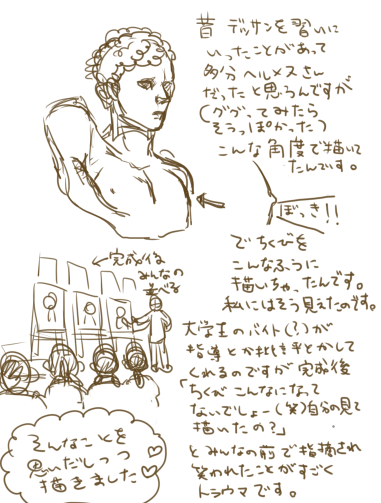 昔 デッサンを習いに
いったことがあって
多分ヘルメスさん
だったと思うんですが
(ググってみたら
そうっぽかった)
こんな角度で描いて
たんです。
ぼっき!!
でちくびを
こんなふうに
描いちゃったんです。
私にはそう見えたのです。
←完成後は
みんなの
並べる
大学生のバイト(?)が
指導とか批評とかして
くれるのですが完成後
「ちくびこんなになって
ないでしょー(笑)自分の見て
描いたの?」
とみんなの前で指摘され
笑われたことがすごく
トラウマです。
そんなことを
思いだしつつ
描きました♡